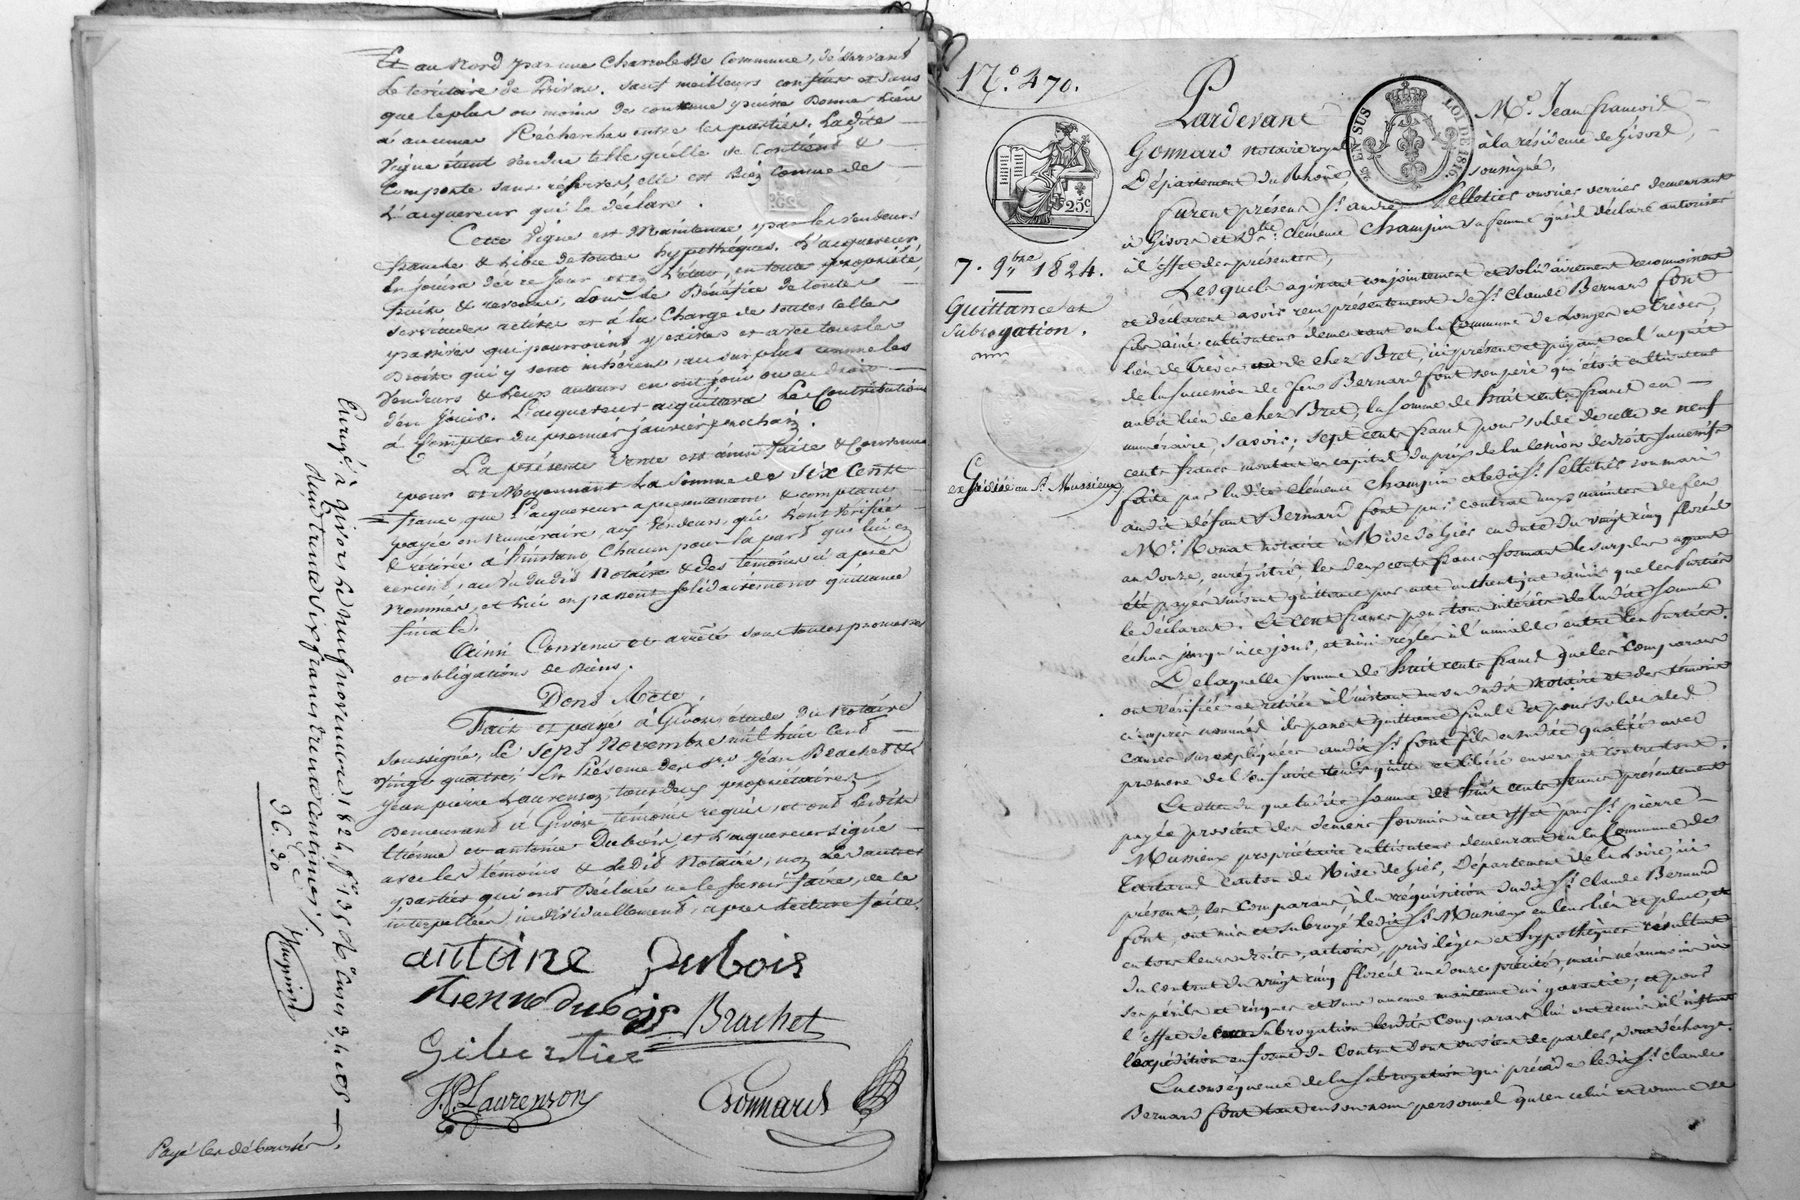 Et au Nord par une Charrolette Commune, désservant
Le territoire de . sauf meilleurs confins et sans
que le plus ou moins de contenue puisse donner Lieu
à aucunes Récherches entre les parties. Ladite
Vigne étant vendue telle qu'elle se Contient &
Comporte sans réserves, elle est Bien Connue de
L'acquereur qui le déclare.
Cette Vigne est Maintenue par les Vendeurs
franche & Libre de toutes hypothéques. L'acquereur
en jouira dès ce jour et en l'état, en toute propriété,
fruits & revenus, sous le Bénéfice de toutes
servitudes actives et à la Charge de toutes celles
passives qui pourroient y exister et avec tous les
Droits qui y sont inhérens, au surplus comme les
Vendeurs & Leurs auteurs en ont joui ou eu droit
d'en jouir. L'acquereur acquittera Les Contributions
à Compter du premier janvier prochain.
La présente Vente est ainsi faite & Convenue
pour et Moyennant La Somme de Six Cents
francs, que L'acquereur a présentement & comptant
payée en Numéraire aux Vendeurs, qui L'ont Vérifiée
& retirée à L'instant Chacun pour la part qui lui en
revient, au Vu dudit Notaire & des témoins ci après
Nommés, et lui en passent solidairement quittance
finale.
Ainsi Convenu et arrêté sous toutes promesses
et obligations de Biens.
Dont Acte,
Fait et passé à Givors étude du Notaire
soussigné, Le Sept Novembre mil huit Cent
Vingt quatre, En Présence des srs Jean Brachet &
Jean pierre Laurenson, tous deux propriétaires
Demeurant à Givors, témoins réquis, et ont Lesdits
Etienne et antoine Dubois et L'acquereur signé
avec les témoins & Ledit Notaire, non Les autres
parties qui ont Déclaré ne le savoir faire, de ce
interpellées individuellement, après Lecture faite.
antoine Dubois
etienne dubois Brachet
Gibertier
J.P. Laurenson Gonnard
Enregé à Givors le neuf novembre 1824, fo 135 Ro Cases 3, 4 et 5
Reçu trente six francs trente centimes
36. 30
Payé les déboursés
No. 470.
25c
7. 9bre 1824.
Quittance et
Subrogation.
Expédiée au Sr. Mussieux
25 EN SUS LOI DE 1816.
Pardevant Me. Jean françois
Gonnard notaire royal à la résidence de Givors,
Département du Rhône, soussigné,
furent présens Sr. andré Pelletier ouvrier verrier demeurant
à Givors et Dlle. Clémence Champin sa femme qu'il déclare autoriser
à l'effet des présentes,
Lesquels agissant conjointement et solidairement reconnoissent
et déclarent avoir reçu présentement de Sr. Claude Bernard font
fils ainé cultivateur demeurant en la Commune de Longes et Trèves,
lieu de Trèves de chez Bret, ici présent et payant en l'acquit
de la succession de feu Bernard font son père qui étoit cultivateur
audit lieu de chez Bret, la somme de huit cents francs en
numéraire, savoir; sept cents francs pour solde de celle de neuf
cents francs montant en capital du prix de la cession de droits successifs
faite par ladite Clémence Champin et ledit Sr. Pelletier son mari
audit défunt Bernard font par contrat aux minutes de feu
Me. Romat notaire à Rive de Gier en date du vingt cinq floréal
an douze, enregistré, les deux cents francs formant le surplus ayant
été payés suivant quittance par acte authentique ainsi que les Parties
le déclarent. Et cent francs pour tous intérêts de ladite somme
échus jusqu'à ce jour, et ainsi réglés à l'amiable entre les Parties.
De laquelle somme de huit cents francs que les Comparans
ont vérifiée et retirée à l'instant au vu dudit notaire et des témoins
ci après nommés ils passent quittance finale et pour solde de l
causes sus expliquées audit Sr. font fils en sadite qualité avec
promesse de l'en faire tenir quitte et libéré envers et contre tous.
Et attendu que ladite somme de huit cents francs présentement
payée provient des deniers fournis à cet effet par Sr. pierre
Mussieux propriétaire cultivateur demeurant en la Commune de
Tartaras canton de Rive de Gier, Département de la Loire, ici
présent, les comparans, à la réquisition dudit Sr. Claude Bernard
font, ont mis et subrogé ledit Sr. Mussieux en leur lieu et place, et
en tous leurs droits, actions, privilèges et hypothèques résultant
du contrat du vingt cinq floréal an douze précité, mais néanmoins à
ses périls et risques et sans aucune maintenue ni garantie; et pour
l'effet de Subrogation lesdits Comparans lui ont remis à l'instant
l'expédition en forme du Contrat dont on vient de parler, dont décharge.
En conséquence de la subrogation qui précède ledit Sr. Claude
Bernard font tant en son nom personnel qu'en celui et comme se